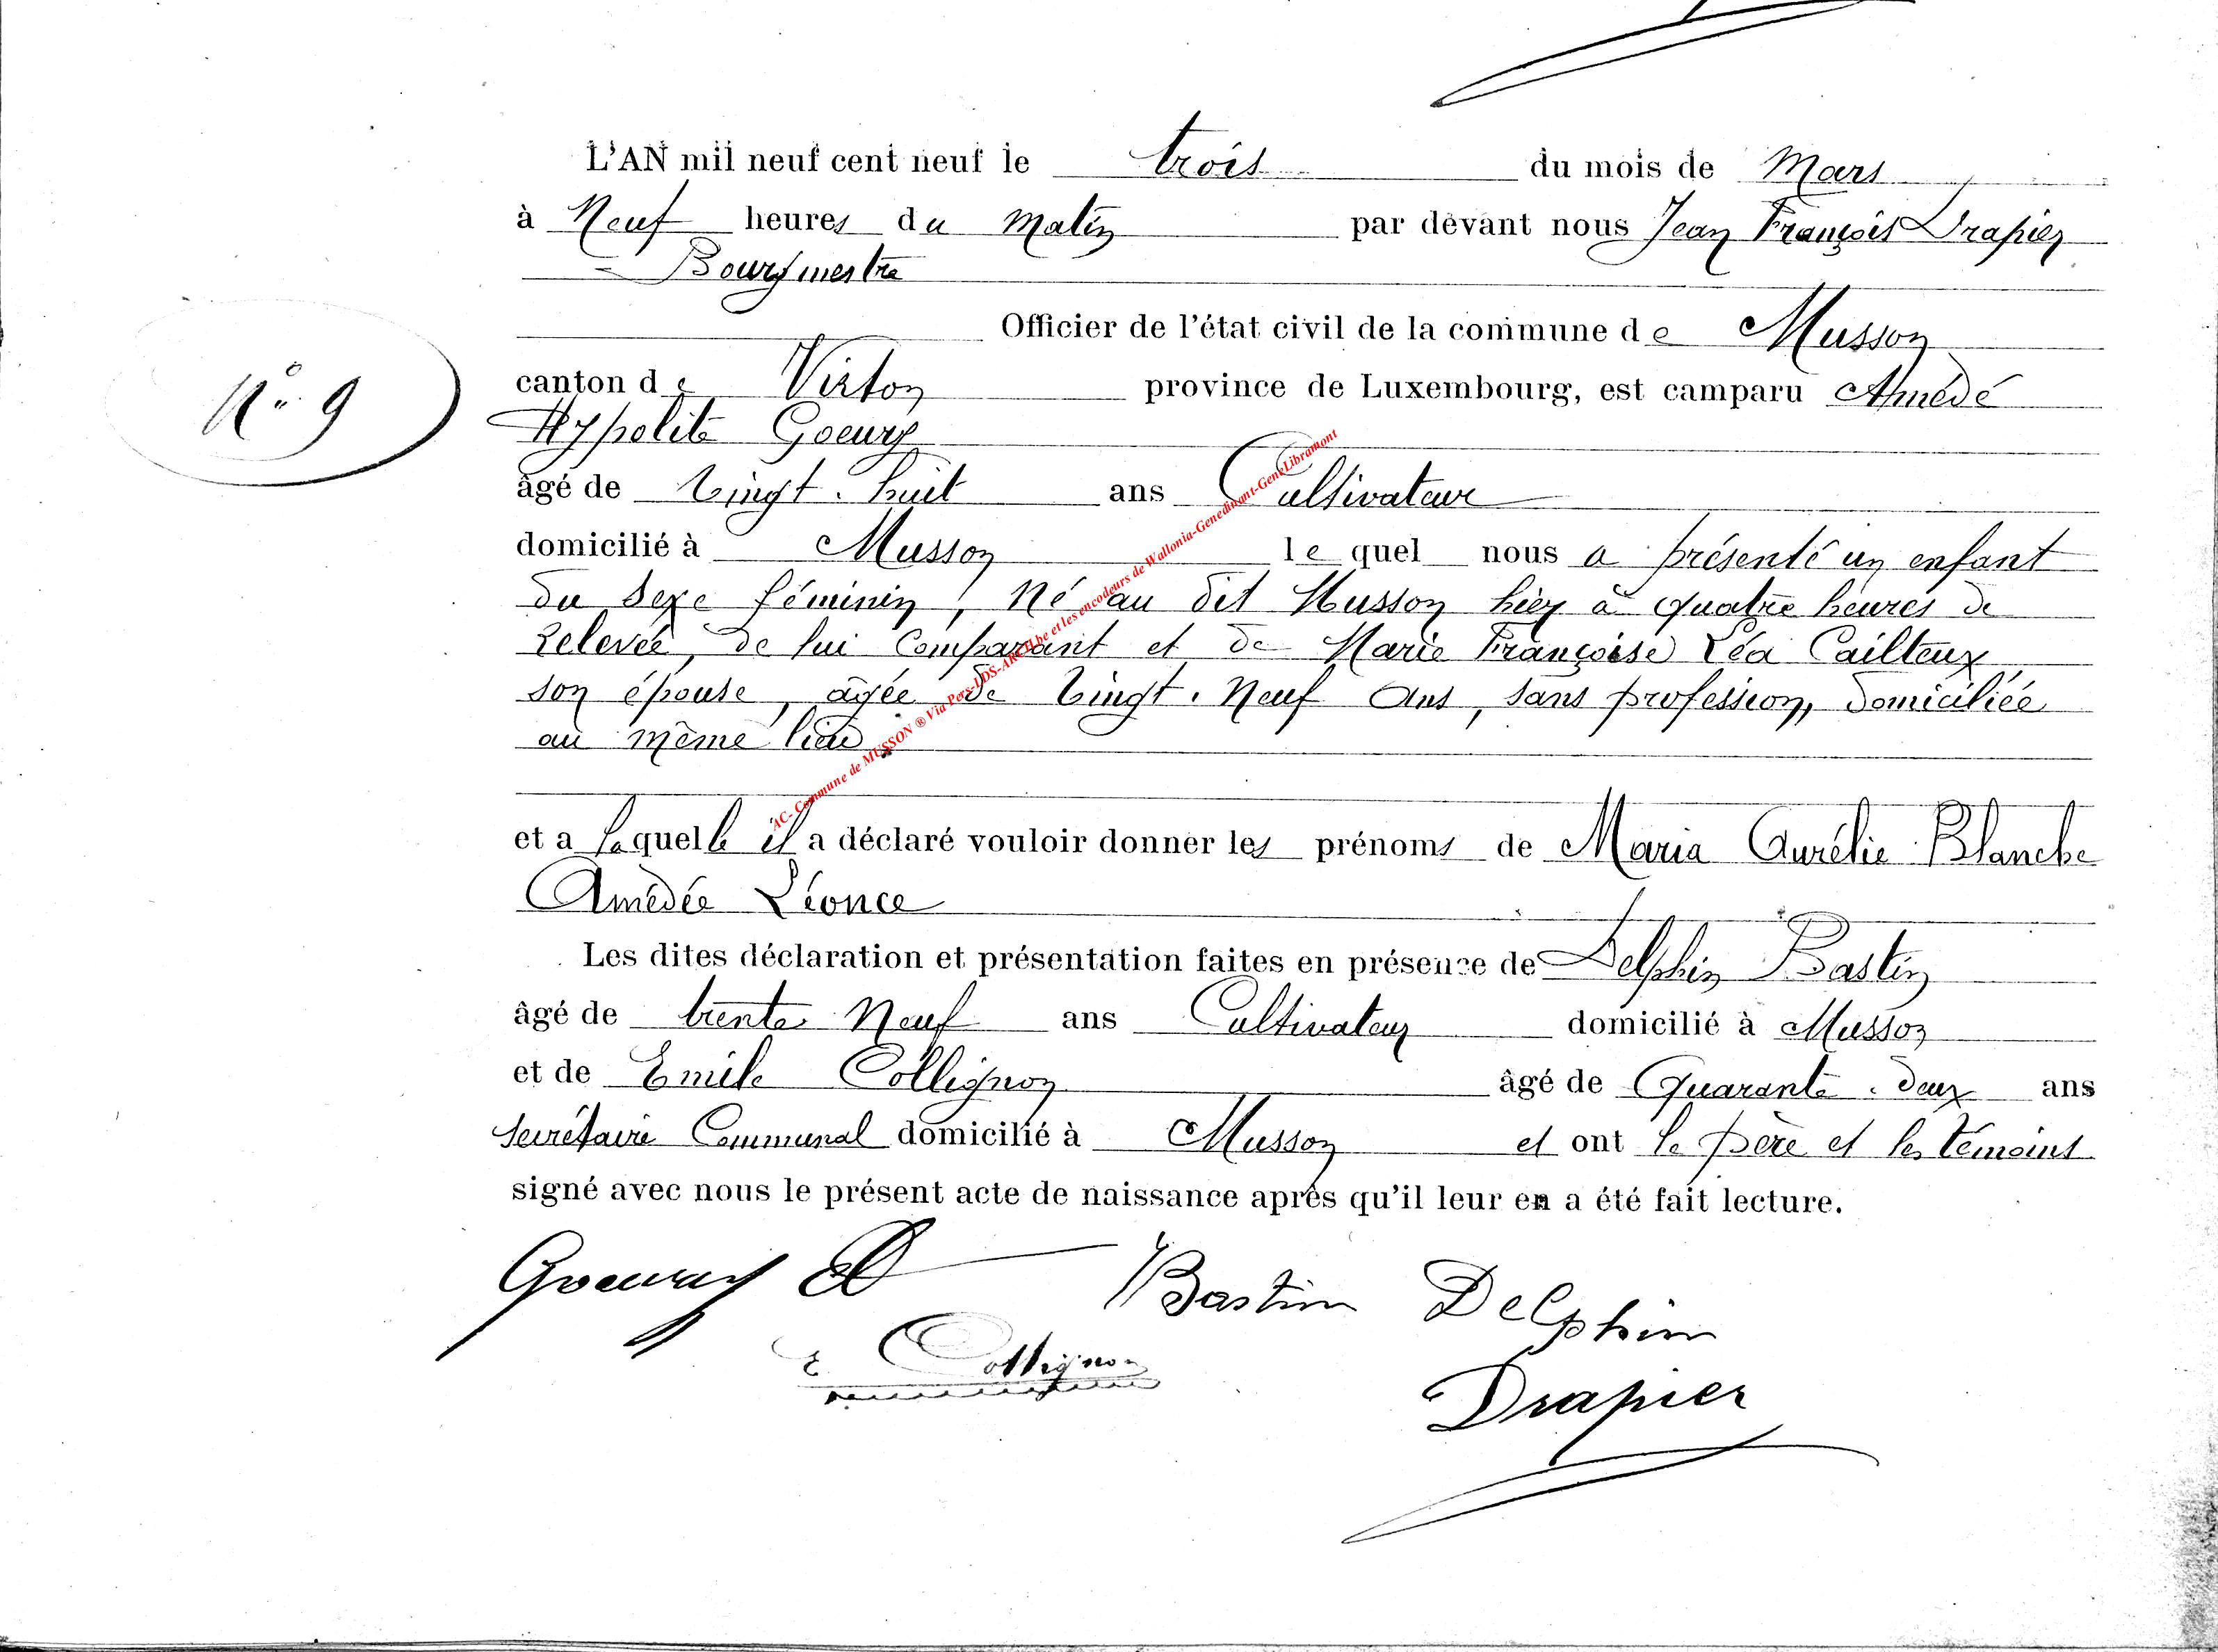 L'AN mil neuf cent neuf le trois du mois de Mars
à Neuf heures du matin par devant nous Jean François Drapier
Bourgmestre
Officier de l'état civil de la commune de Musson
N° 9
canton de Virton province de Luxembourg, est camparu Amédé
Hypolite Goeury
âgé de vingt-huit ans Cultivateur
domicilié à Musson le quel nous a présenté un enfant
du sexe féminin, né au dit Musson hier à quatre heures de
relevée, de lui comparant et de Marie Françoise Léa Cailteux
son épouse, agée de vingt-neuf ans, sans profession, domiciliée
au même lieu.
et a laquelle il a déclaré vouloir donner les prénoms de Maria Aurélie Blanche
Amédée Léonce
Les dites déclaration et présentation faites en présence de Delphin Bastin
âgé de trente neuf ans Cultivateur domicilié à Musson
et de Emile Collignon âgé de Quarante-deux ans
Secrétaire Communal domicilié à Musson et ont le père et les témoins
signé avec nous le présent acte de naissance après qu'il leur en a été fait lecture.
Goeury A Bastin Delphin
E Collignon
Drapier
AC- Commune de MUSSON ® Via Pers-LDS-ARCH.be et les encodeurs de Wallonia-Genedinant-GeneLibramont